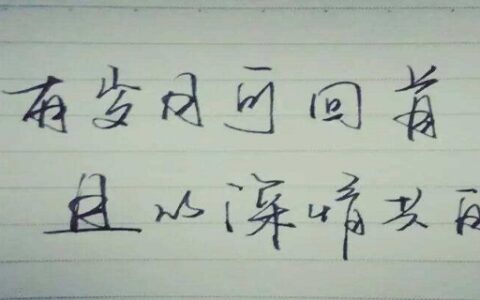 有岁月可回首
且以深情共白